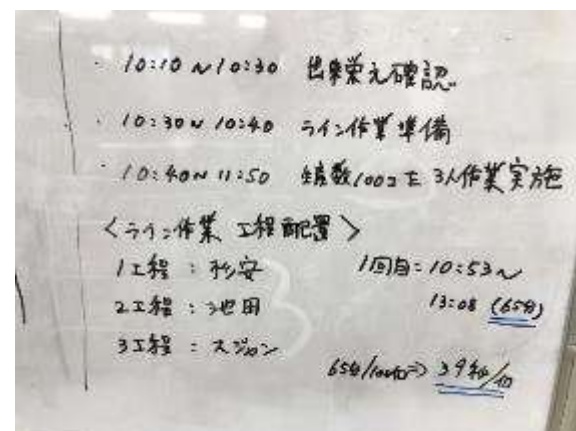 ・10:10～10:30 出来栄え確認
・10:30～10:40 ライン作業準備
・10:40～11:50 総数100コを3人作業実施
＜ライン作業 工程配置＞
1工程：杉安
2工程：池田
3工程：スジョン
1回目：10:53～
13:08 (65分)
65分/100個⇒39秒/個